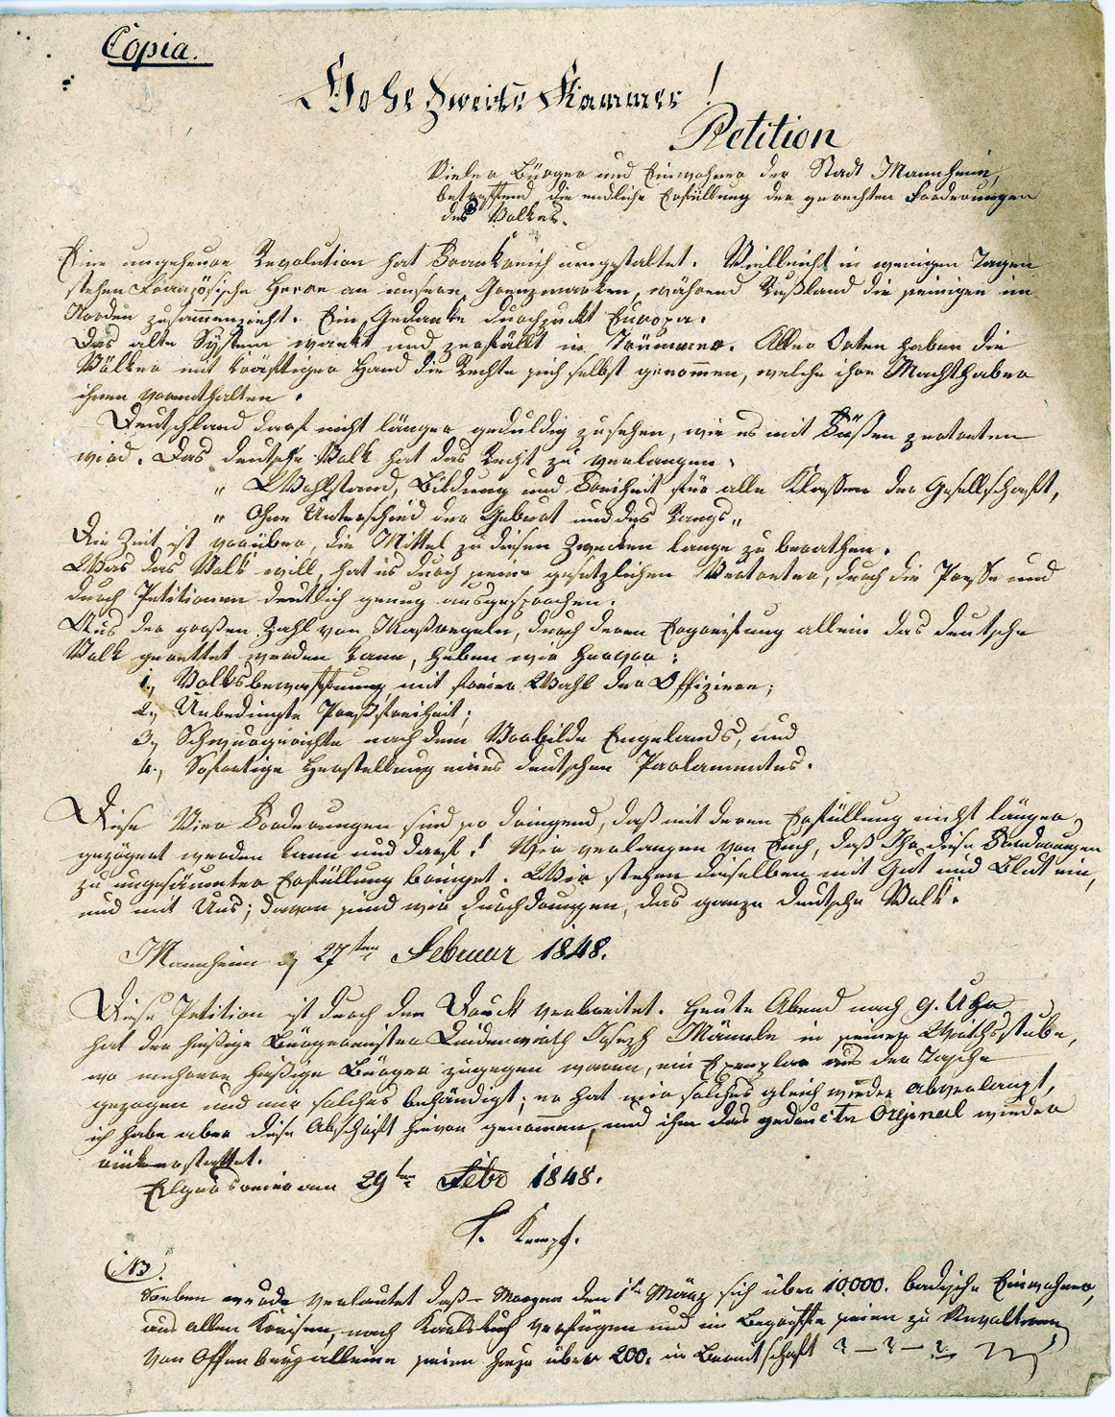 Copia.
Hohe Zweite Kammer!
Petition
Vieler Bürger und Einwohner der Stadt Mannheim,
betreffend die endliche Erfüllung der gerechten Forderungen
des Volkes.
Eine ungeheure Revolution hat Frankreich umgestaltet. Vielleicht in wenigen Tagen
stehen Französische Heere an unsern Grenzmarken, während Rußland die seinigen im
Norden zusammenzieht. Ein Gedanke durchzuckt Europa.
Das alte System wankt und zerfällt in Trümmer. Aller Orten haben die
Völker mit kräftiger Hand die Rechte sich selbst genommen, welche ihre Machthaber
ihnen vorenthalten.
Deutschland darf nicht länger geduldig zusehen, wie es mit Füßen zertreten
wird. Das deutsche Volk hat das Recht zu verlangen:
„ Wohlstand, Bildung und Freiheit für alle Klassen der Gesellschaft,
„ Ohne Unterschied der Geburt und des Rangs„
Die Zeit ist vorüber, die Mittel zu diesen Zwecken lange zu berathen.
Was das Volk will, hat es durch seine gesetzlichen Vertreter, durch die Presse und
durch Petitionen deutlich genug ausgesprochen.
Aus der großen Zahl von Maßregeln, durch deren Ergreifung allein das deutsche
Volk gerettet werden kann, heben wir hervor:
1., Volksbewaffnung mit freier Wahl der Offiziere;
2., Unbedingte Preßfreiheit;
3., Schwurgerichte nach dem Vorbilde Engelands, und
4., Sofortige Herstellung eines deutschen Parlamentes.
Diese Vier Forderungen sind so dringend, daß mit deren Erfüllung nicht länger
gezögert werden kann und darf! Wir verlangen von Euch, daß Ihr diese Forderungen
zu ungesäumter Erfüllung bringet. Wir stehen für dieselben mit Gut und Blut ein,
und mit Uns; davon sind wir durchdrungen, das ganze deutsche Volk.
Mannheim 27ten Februar 1848.
Diese Petition ist durch den Druck verbreitet. Heute Abend nach 9. Uhr
hat der hiesige Bürgermeister Lindenwirth Joseph Männle in seiner Wirthsstube,
wo mehrere hiesige Bürger zugegen waren, ein Exemplar aus der Tasche
gezogen und mir solches behändigt; er hat mir solches gleich wieder abverlangt,
ich habe aber diese Abschrift hievon genommen, und ihm das gedruckte Orginal wieder
rückerstattet.
29ten Febr 1848.
F. Kempf.
NB.
Soeben wurde verlautet daß Morgen den 1ten März sich über 10,000. badische Einwohner,
aus allen Kreisen, nach Karlsruh verfügen und im Begriffe seien zu Revoltiren
Von Offenburg alleine seien heze über 200. in Bereitschaft ? — ? — ?